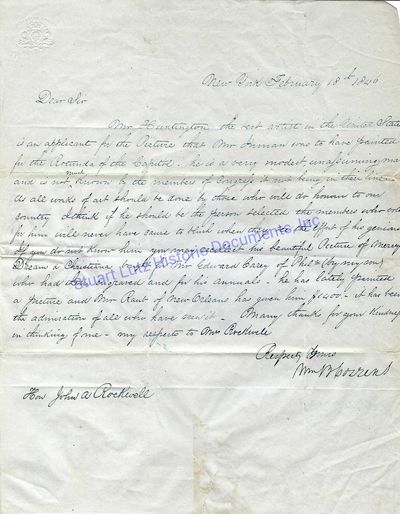 New York February 18th 1846
Dear Sir
Mr Huntington the best artist in the United States
is an applicant for the Picture that Mr Inman was to have painted
for the Rotunda of the Capitol. he is a very modest unassuming man
and is not much known by the members of Congress it not being in their line
As all works of art should be done by those who will do honour to our
country I think if he should be the person selected the members who vote
for him will never have cause to blush when they see the effort of his genius
If you do not know him you may recollect his beautiful Picture of Mercy's
Dream & Christiana Mr Edward Carey of Phila (by my son)
who had them engraved and for his annuals. he has lately painted
a picture and Mr of New Orleans has given him $1400 - it has been
the admiration of all who have seen it - Many thanks for your kindness
in thinking of me - my respects to Mrs Rockwell
Respecty Yours
Wm
Hon John A Rockwell
Stuart Lutz Historic Documents, Inc.